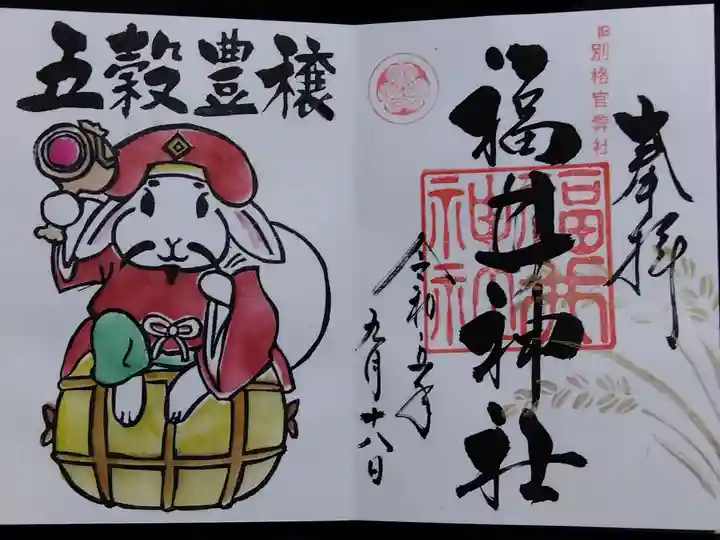 五穀豊穣
奉拝
旧別格官弊社
福井神社
福井神社
令和五年
九月十八日